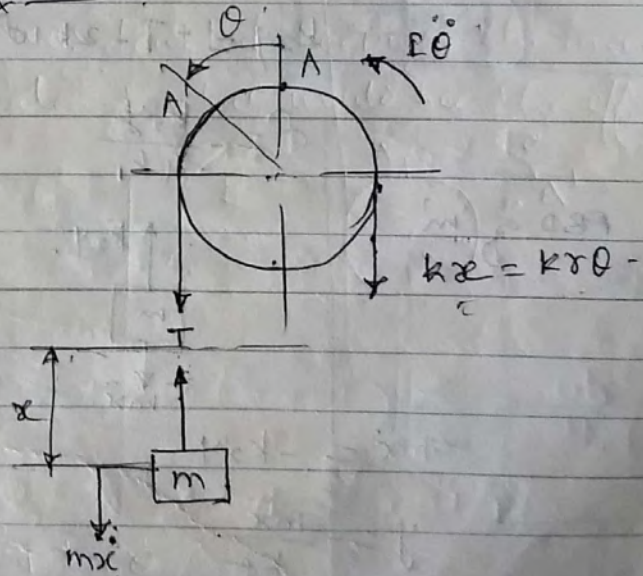 θ
A
A
Iθ̈
kx = krθ
T
x
m
mẍ